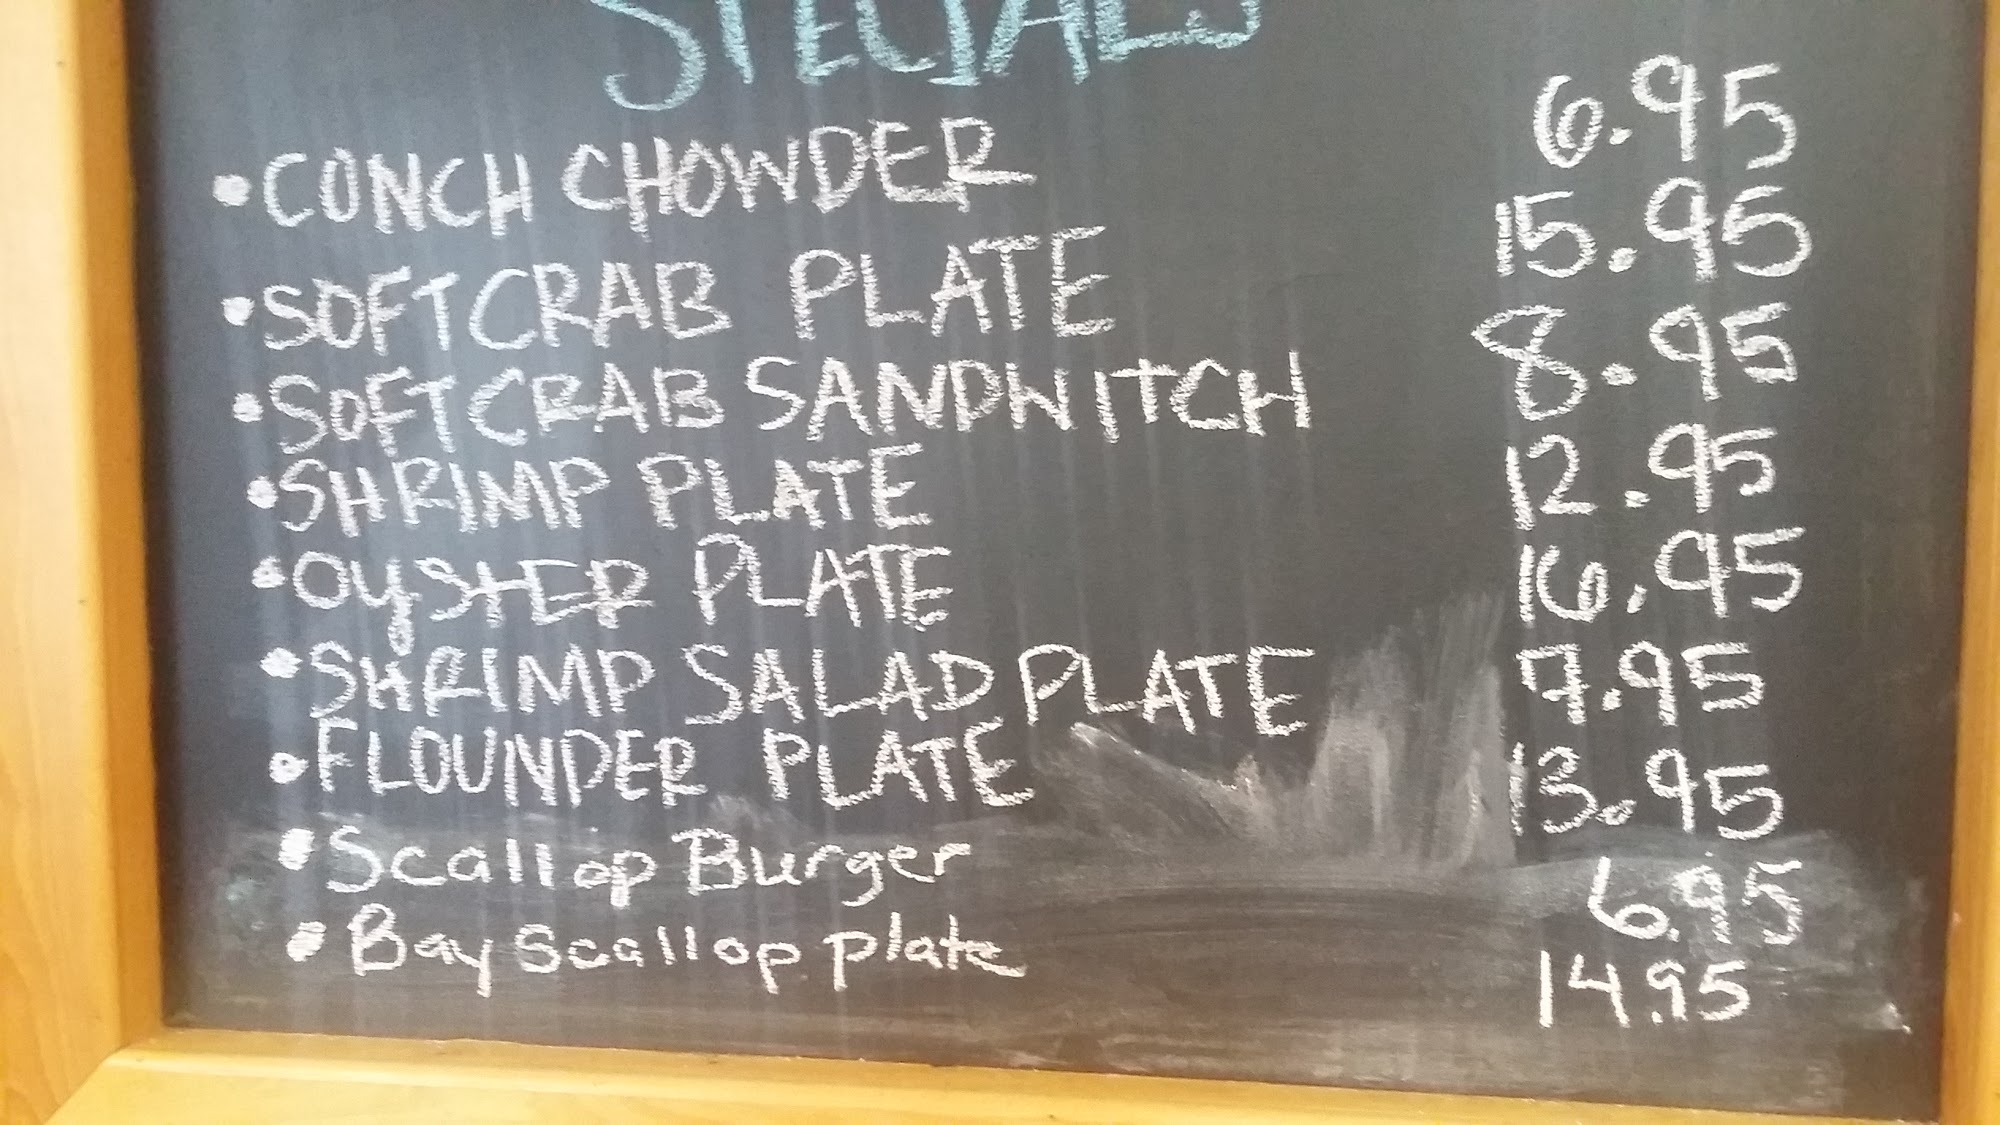 SPECIALS
• CONCH CHOWDER 6.95
• SOFTCRAB PLATE 15.95
• SOFTCRAB SANDWITCH 8.95
• SHRIMP PLATE 12.95
• OYSTER PLATE 16.95
• SHRIMP SALAD PLATE 7.95
• FLOUNDER PLATE 13.95
• Scallop Burger 6.95
• Bay Scallop plate 14.95